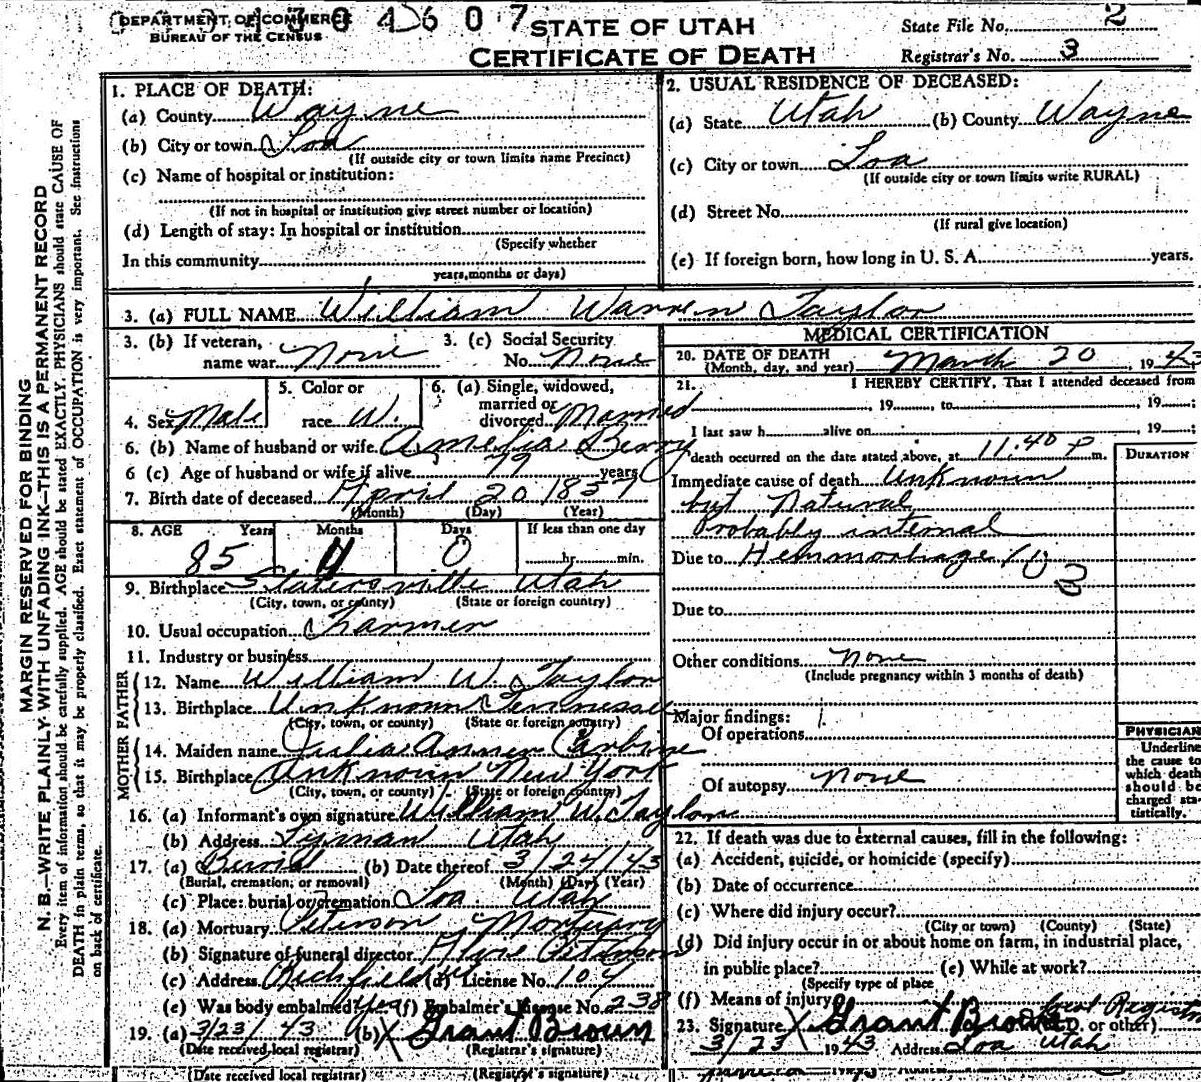 DEPARTMENT OF COMMERCE
BUREAU OF THE CENSUS
4607
STATE OF UTAH
CERTIFICATE OF DEATH
State File No. 2
Registrar's No. 3
MARGIN RESERVED FOR BINDING
N. B.—WRITE PLAINLY WITH UNFADING INK—THIS IS A PERMANENT RECORD
Every item of information should be carefully supplied. AGE should be stated EXACTLY. PHYSICIANS should state CAUSE OF
DEATH in plain terms, so that it may be properly classified. Exact statement of OCCUPATION is very important. See instructions
on back of certificate.
1. PLACE OF DEATH:
(a) County Wayne
(b) City or town Loa
(If outside city or town limits name Precinct)
(c) Name of hospital or institution:
(If not in hospital or institution give street number or location)
(d) Length of stay: In hospital or institution
(Specify whether
In this community
years, months or days)
2. USUAL RESIDENCE OF DECEASED:
(a) State Utah (b) County Wayne
(c) City or town Loa
(If outside city or town limits write RURAL)
(d) Street No.
(If rural give location)
(e) If foreign born, how long in U. S. A. years.
3. (a) FULL NAME William Warren Taylor
3. (b) If veteran, name war None
3. (c) Social Security No. None
4. Sex Male
5. Color or race W.
6. (a) Single, widowed, married or divorced Married
6. (b) Name of husband or wife Amelia Berry
6 (c) Age of husband or wife if alive 79 years
7. Birth date of deceased April 20 1857
(Month) (Day) (Year)
8. AGE Years Months Days If less than one day
85 11 0 hr. min.
9. Birthplace Slatersville Utah
(City, town, or county) (State or foreign country)
10. Usual occupation Farmer
11. Industry or business
FATHER
12. Name William W. Taylor
13. Birthplace Unknown Tennessee
(City, town, or county) (State or foreign country)
MOTHER
14. Maiden name Julia
15. Birthplace Unknown New York
(City, town, or county) (State or foreign country)
16. (a) Informant's own signature William W. Taylor
(b) Address Lyman Utah
17. (a) Burial (b) Date thereof 3/24/43
(Burial, cremation, or removal) (Month) (Day) (Year)
(c) Place: burial or cremation Loa Utah
18. (a) Mortuary Peterson Mortuary
(b) Signature of funeral director
(c) Address Richfield (d) License No. 104
(e) Was body embalmed yes (f) Embalmer's License No. 238
19. (a) 3/23/43 (b) X Grant Brown
(Date received local registrar) (Registrar's signature)
(Date received local registrar) (Registrar's signature)
MEDICAL CERTIFICATION
20. DATE OF DEATH
(Month, day, and year) March 20, 1943
21. I HEREBY CERTIFY, That I attended deceased from
, 19 , to , 19 ;
I last saw h alive on , 19 ;
death occurred on the date stated above, at 11:40 P m.
DURATION
Immediate cause of death Unknown
but Natural
Probably internal
Due to Hemmorhage
Due to
Other conditions None
(Include pregnancy within 3 months of death)
Major findings:
Of operations
Of autopsy None
PHYSICIAN
Underline
the cause to
which death
should be
charged sta-
tistically.
22. If death was due to external causes, fill in the following:
(a) Accident, suicide, or homicide (specify)
(b) Date of occurrence
(c) Where did injury occur?
(City or town) (County) (State)
(d) Did injury occur in or about home on farm, in industrial place,
in public place? (e) While at work?
(Specify type of place
(f) Means of injury
23. Signature X Grant Brown (M.D. or other)
3/23 1943 Address Loa Utah